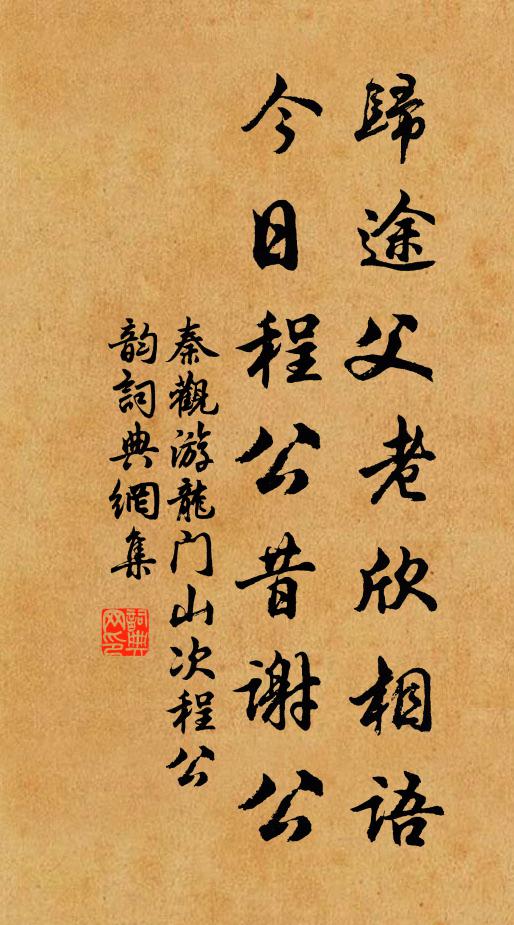 歸途父老欣相语
今日程公昔谢公
秦觀游龍门山次程公
韵詞典網集
詞典
网印